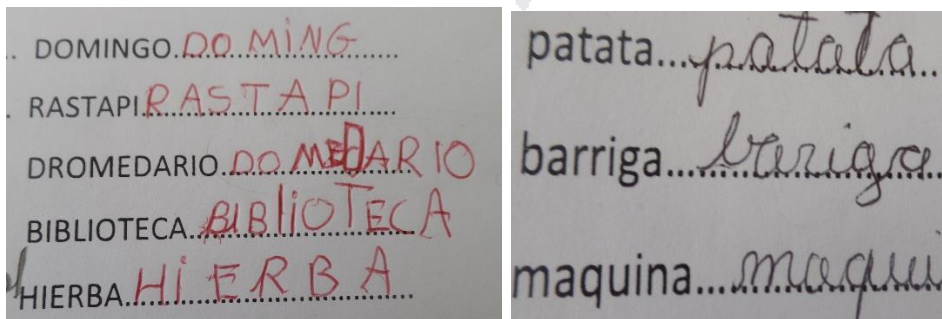 DOMINGO.DO MiNG
RASTAPI.RASTAPI
DROMEDARIO.DOMEDARIO
BIBLIOTECA.BIBliOTECA
HIERBA.HiERBA
patata...patata
barriga...bariga
maquina...maqui